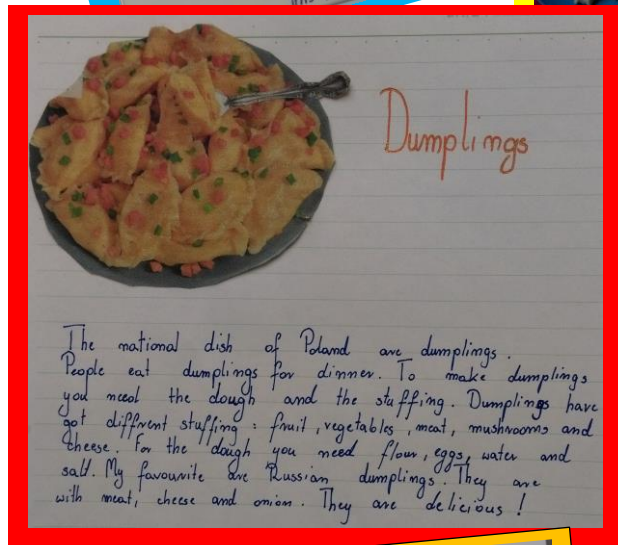 Dumplings
The national dish of Poland are dumplings.
People eat dumplings for dinner. To make dumplings
you need the dough and the stuffing. Dumplings have
got diffrent stuffing : fruit, vegetables, meat, mushrooms and
cheese. For the dough you need flour, eggs, water and
salt. My favourite are Russian dumplings. They are
with meat, cheese and onion. They are delicious!